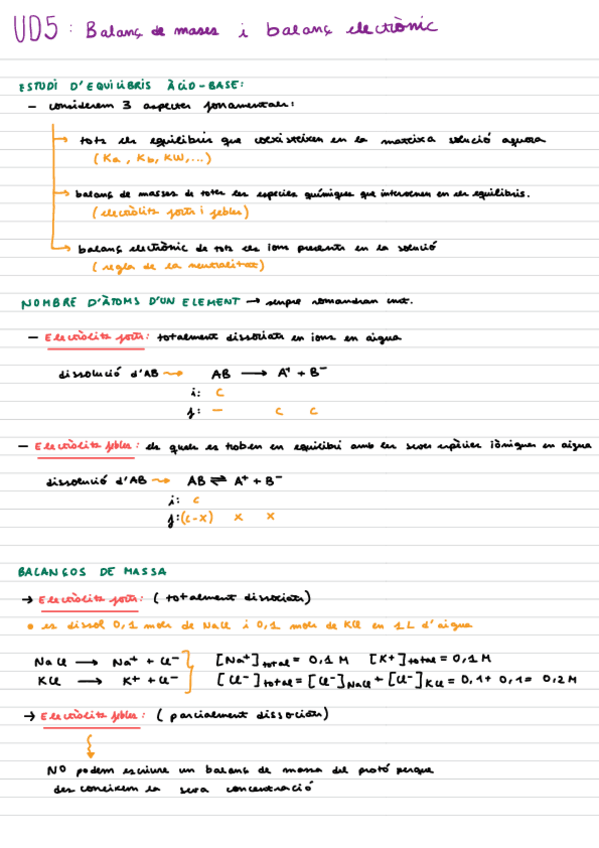 UD5: Balanç de mases i balanç electrònic
ESTUDI D'EQUILIBRIS ÀCID-BASE:
- considerem 3 aspectes fonamentals:
→ tots els equilibris que coexisteixen en la mateixa solució aquosa
(Ka, Kb, KW,...)
→ balanç de masses de totes les espècies químiques que intervenen en els equilibris.
(electròlits forts i febles)
→ balanç electrònic de tots els ions presents en la solució
(regla de la neutralitat)
NOMBRE D'ÀTOMS D'UN ELEMENT → sempre romandran
- Electròlits forts: totalment dissociats en ions en aigua
dissolució d'AB → AB → A+ + B-
i: c
f: - c c
- Electròlits febles: els quals es troben en equilibri amb les seves espècies iòniques en aigua
dissolució d'AB → AB ⇌ A+ + B-
i: c
f: (c-x) x x
BALANÇOS DE MASSA
→ Electròlits forts: (totalment dissociats)
• es dissol 0,1 mols de NaCl i 0,1 mols de KCl en 1L d'aigua
NaCl → Na+ + Cl- [Na+]total = 0,1 M [K+]total = 0,1 M
KCl → K+ + Cl- [Cl-]total = [Cl-]NaCl + [Cl-]KCl = 0,1 + 0,1 = 0,2 M
→ Electròlits febles: (parcialment dissociats)
NO podem escriure un balanç de massa del protó perque
desconeixem la seva concentració